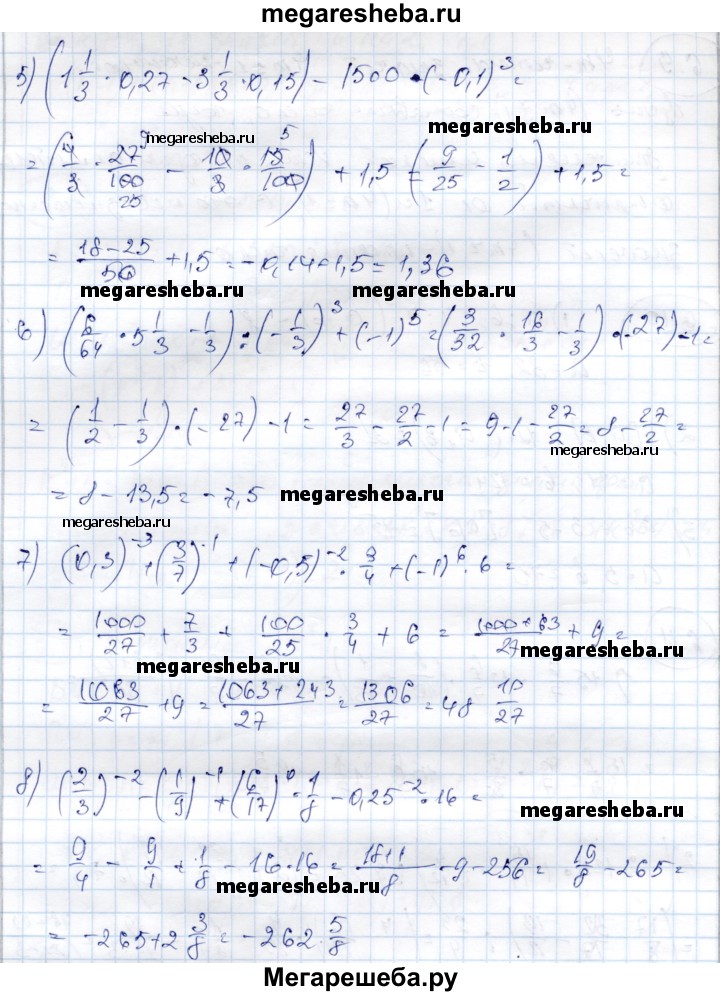 megaresheba.ru
5) (1 1/3 · 0,27 - 3 1/3 · 0,15) - 1500 · (-0,1)³ =
megaresheba.ru megaresheba.ru
= (4/3 · 27/100 - 10/3 · 15/100) + 1,5 = (9/25 - 1/2) + 1,5 =
9 5
25
= (18-25)/50 + 1,5 = -0,14+1,5 = 1,36
megaresheba.ru megaresheba.ru
6) (6/64 · 5 1/3 - 1/3) : (-1/3)³ + (-1)⁵ = (3/32 · 16/3 - 1/3) · (-27) - 1 =
= (1/2 - 1/3) · (-27) - 1 = 27/3 - 27/2 - 1 = 9-1-27/2 = 8 - 27/2 =
megaresheba.ru
= 8 - 13,5 = -7,5 megaresheba.ru
megaresheba.ru
7) (0,3)⁻³ + (3/7)⁻¹ + (-0,5)⁻² · 3/4 + (-1)⁶ · 6 =
= 1000/27 + 7/3 + 100/25 · 3/4 + 6 = (1000+63)/27 + 9 =
megaresheba.ru megaresheba.ru
= 1063/27 + 9 = (1063+243)/27 = 1306/27 = 48 10/27
megaresheba.ru
8) (2/3)⁻² - (1/9)⁻¹ + (6/17)⁰ · 1/8 - 0,25⁻² · 16 =
megaresheba.ru
= 9/4 - 9/1 + 1/8 - 16·16 = (18+1)/8 - 9 - 256 = 19/8 - 265 =
megaresheba.ru
= -265+2 3/8 = -262 5/8
megaresheba.ru
Мегарешеба.ру